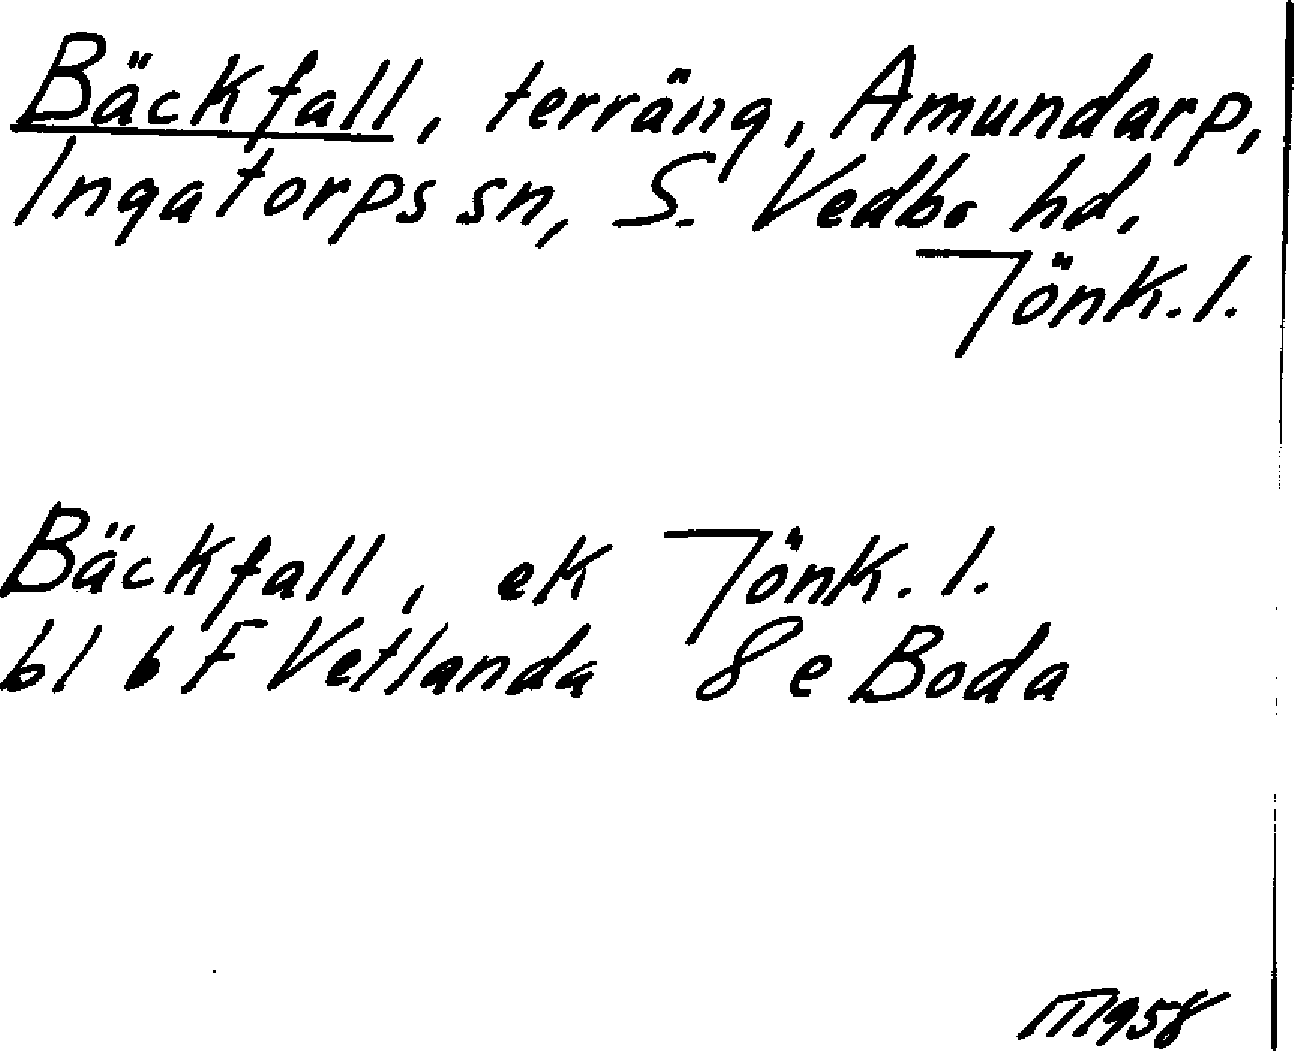 Bäckfall, terräng, Amundarp,
Ingatorps sn, S. Vedbo hd.
Jönk. l.
Bäckfall, ek Jönk. l.
bl 6 F Vetlanda 8 e Boda